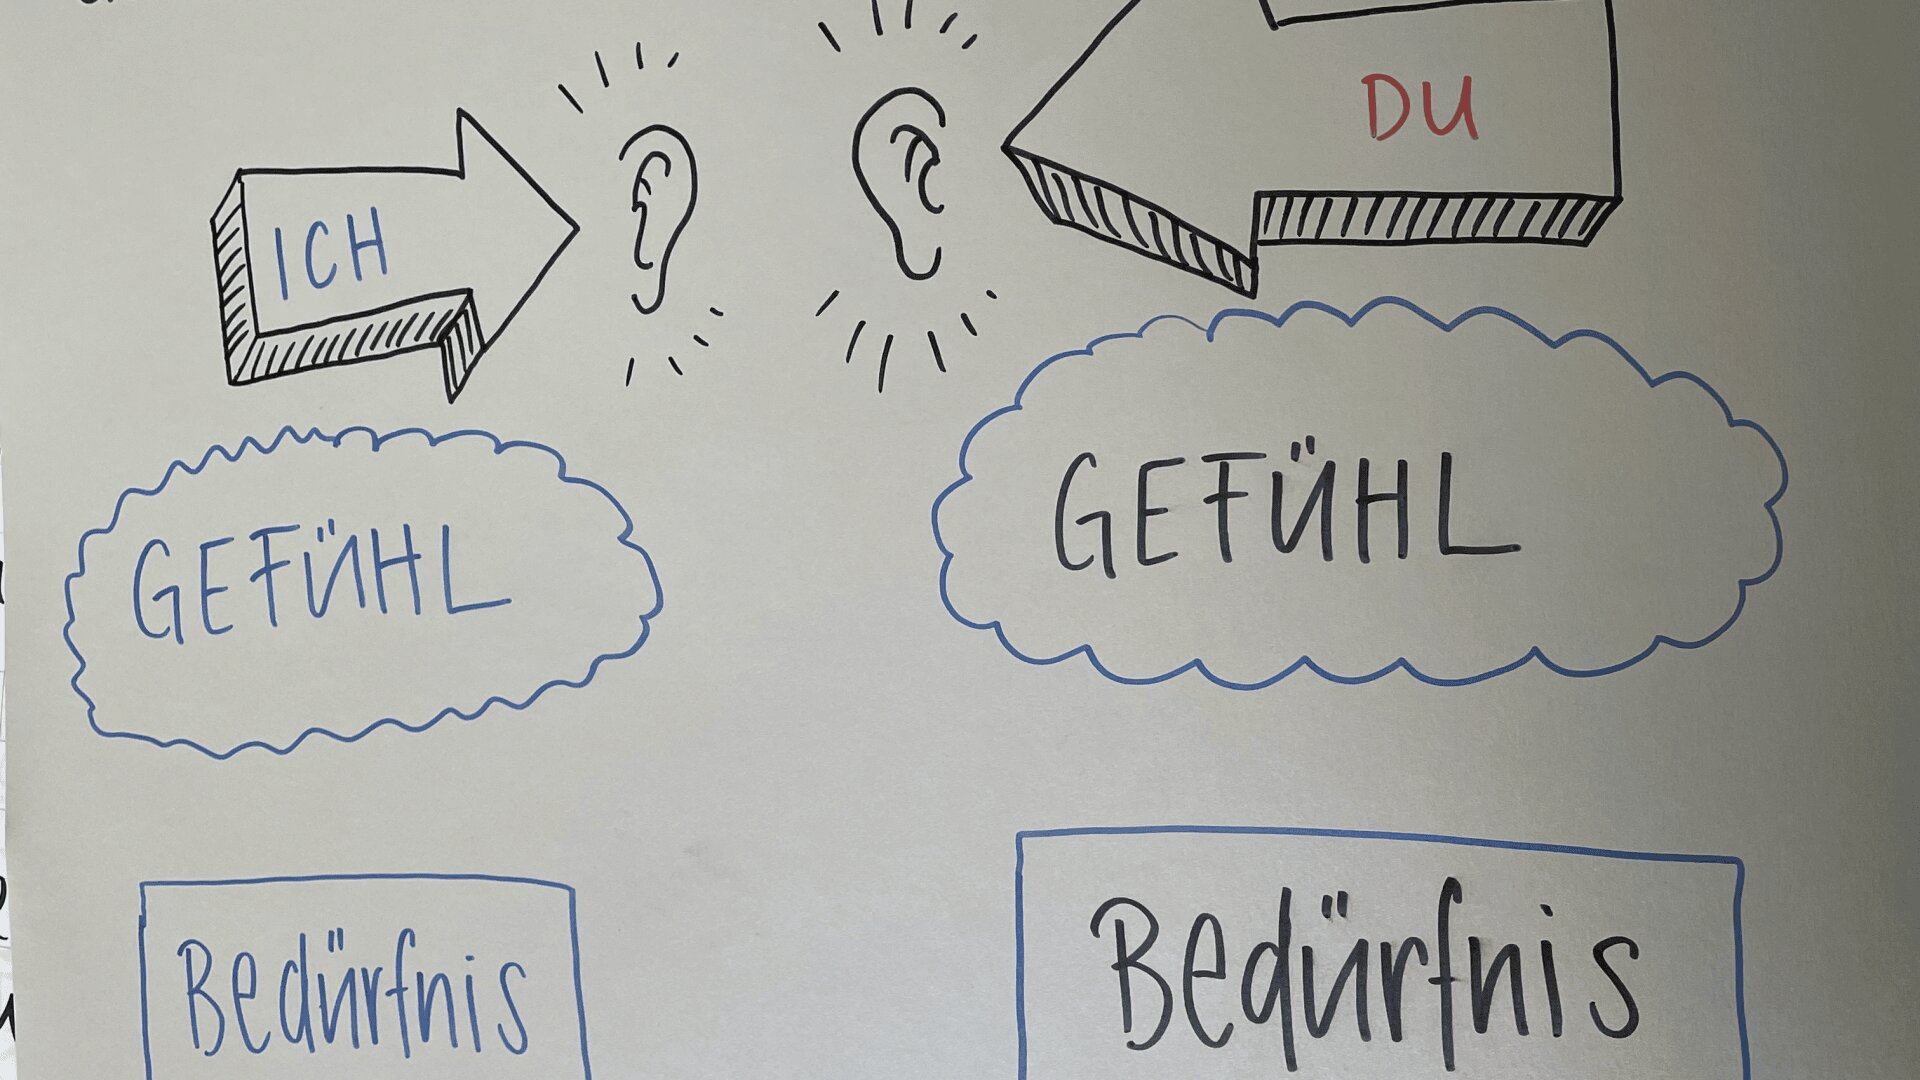 ICH
DU
GEFÜHL
GEFÜHL
Bedürfnis
Bedürfnis